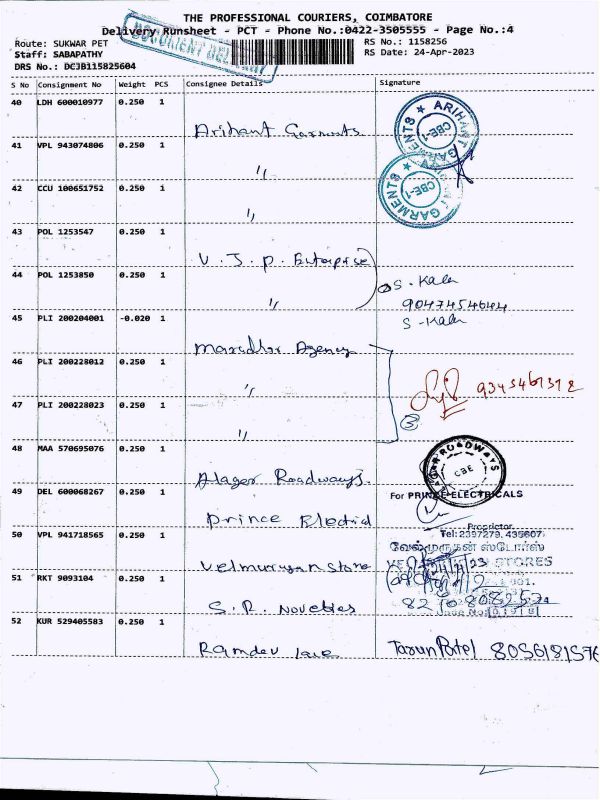 THE PROFESSIONAL COURIERS, COIMBATORE
Delivery Runsheet - PCT - Phone No.:0422-3505555 - Page No.:4
Route: SUKWAR PET
RS No.: 1158256
Staff: SABAPATHY
RS Date: 24-Apr-2023
DRS No.: DCJB115825604
DOCUMENT
S No Consignment No Weight PCS Consignee Details Signature
40 LDH 600010977 0.250 1 Arihant Garments
ARIHANT GARMENTS ★ CBE-1
41 VPL 943074806 0.250 1 "
ARIHANT GARMENTS ★ CBE-1
42 CCU 100651752 0.250 1 "
43 POL 1253547 0.250 1 V. J. P. Enterprise
44 POL 1253850 0.250 1 " S-Kala
9047454644
45 PLI 200204001 -0.020 1 Marudhar Agency S-Kala
46 PLI 200228012 0.250 1 "
9345461312
47 PLI 200228023 0.250 1 "
3
48 MAA 570695076 0.250 1 Alager Roadways.
ROADWAYS CBE
49 DEL 600068267 0.250 1 Prince Electrid
For PRINCE ELECTRICALS
Proprietor
50 VPL 941718565 0.250 1 Velmurugan Store
Tel:2397279, 435607
வேல்முருகன் ஸ்டோர்ஸ்
STORES
51 RKT 9093104 0.250 1 S.R. Novelties
52 KUR 529405583 0.250 1 Ramdev lace Tarun Patel 8056181576